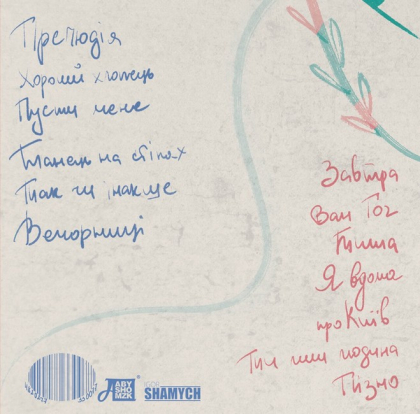 Прелюдія
Хороший хлопець
Пусти мене
Танець на стінах
Так чи інакше
Вечорниці
Завтра
Ван Гог
Тиша
Я вдома
про Київ
Тич ини година
Пізно
ABY
SHO
MZK
SHAMYCH